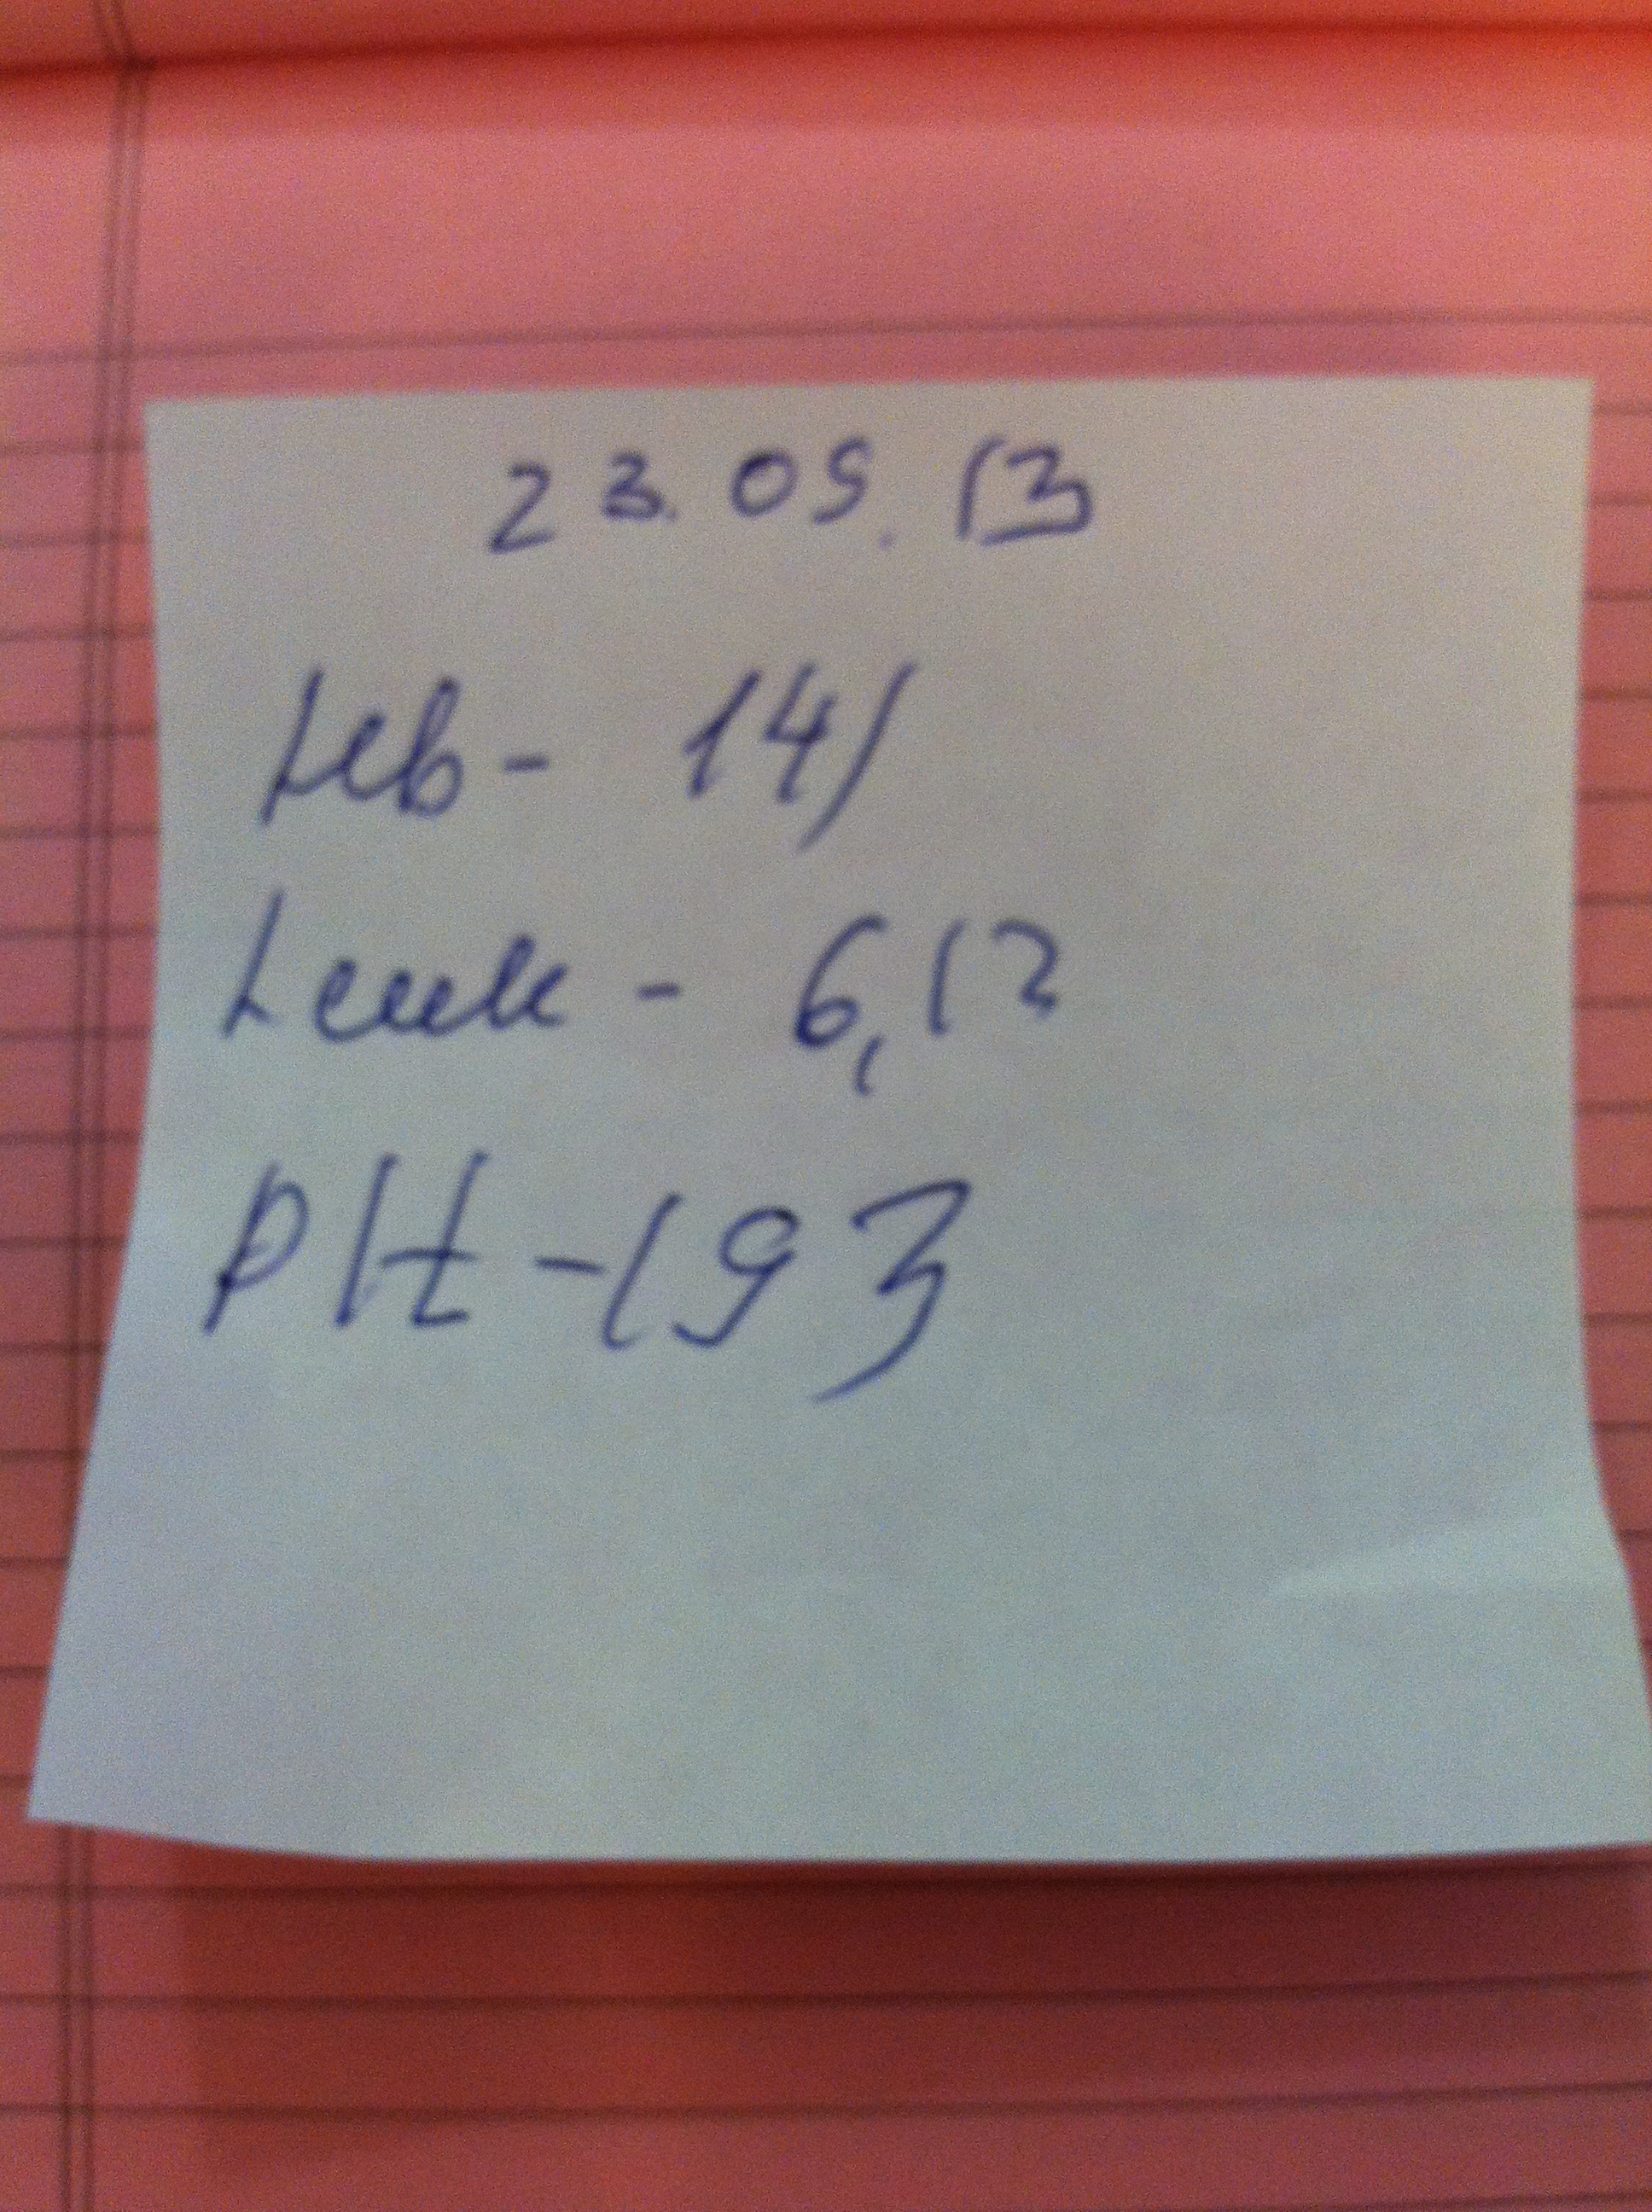 23.05.13
Heb - 141
Leuk - 6,12
Plt - 193